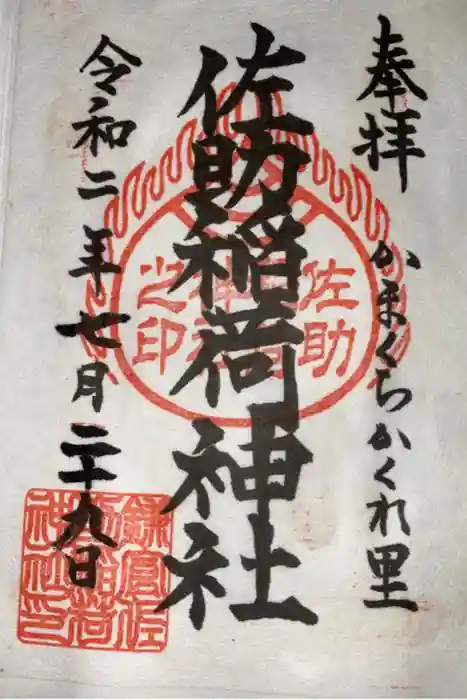 奉拝
かまくらかくれ里
佐助稲荷神社
令和二年七月二十九日
佐助
之印
鎌倉佐
助稲荷
神社印